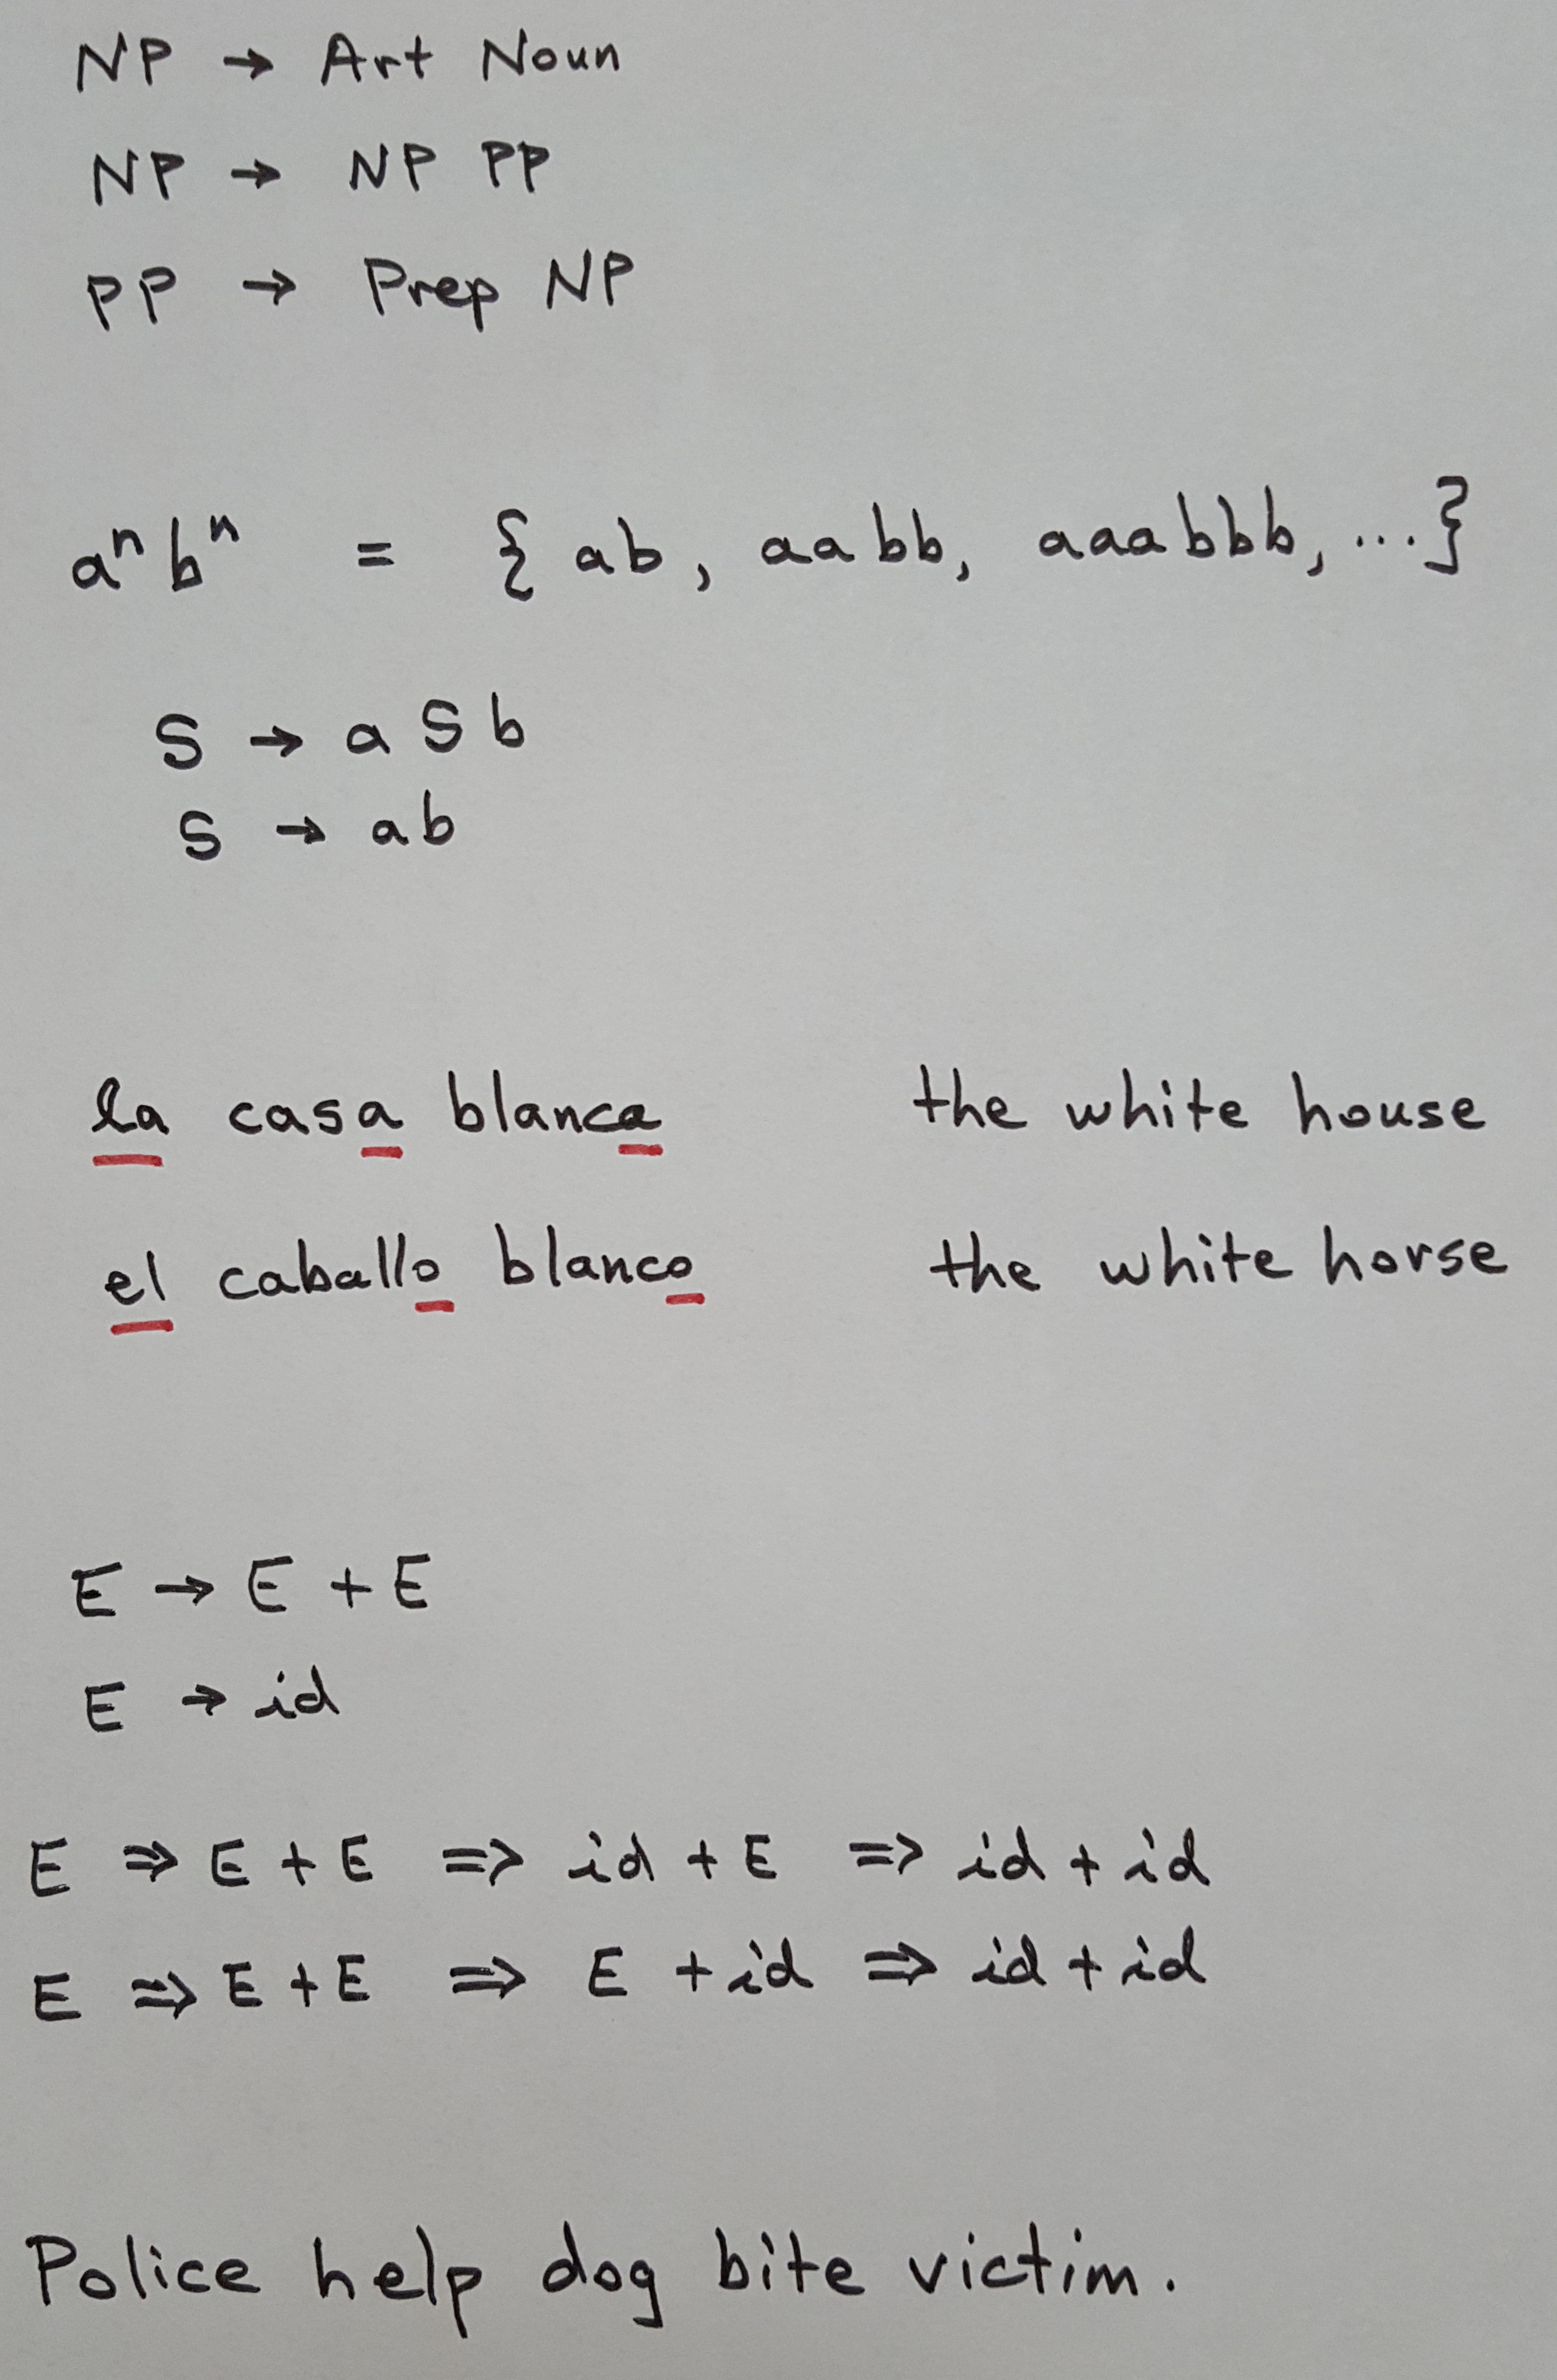 NP → Art Noun
NP → NP PP
PP → Prep NP
aⁿbⁿ = { ab, aabb, aaabbb, ...}
S → a S b
S → ab
la casa blanca the white house
el caballo blanco the white horse
E → E + E
E → id
E ⇒ E + E ⇒ id + E ⇒ id + id
E ⇒ E + E ⇒ E + id ⇒ id + id
Police help dog bite victim.